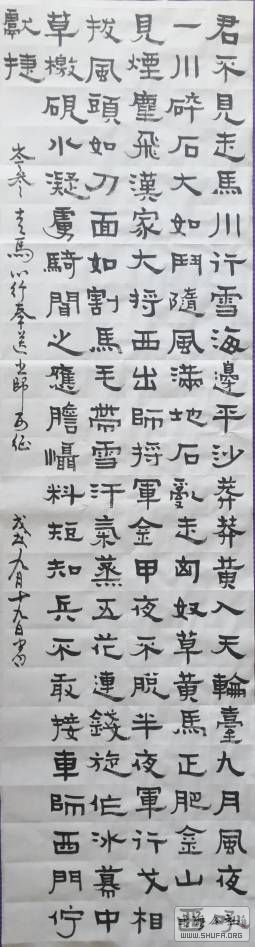 君不見走馬川行雪海邊平沙莽莽黃入天輪臺九月風夜
一川碎石大如鬥隨風滿地石亂走匈奴草黃馬正肥金山西
見煙塵飛漢家大將西出師將軍金甲夜不脫半夜軍行戈相
拔風頭如刀面如割馬毛帶雪汗氣蒸五花連錢旋作冰幕中
草檄硯水凝虜騎聞之應膽懾料短知兵不敢接車師西門佇
獻捷
岑參走馬川行奉送出師西征
戊戌九月十九日
WWW.SHUFA.ORG